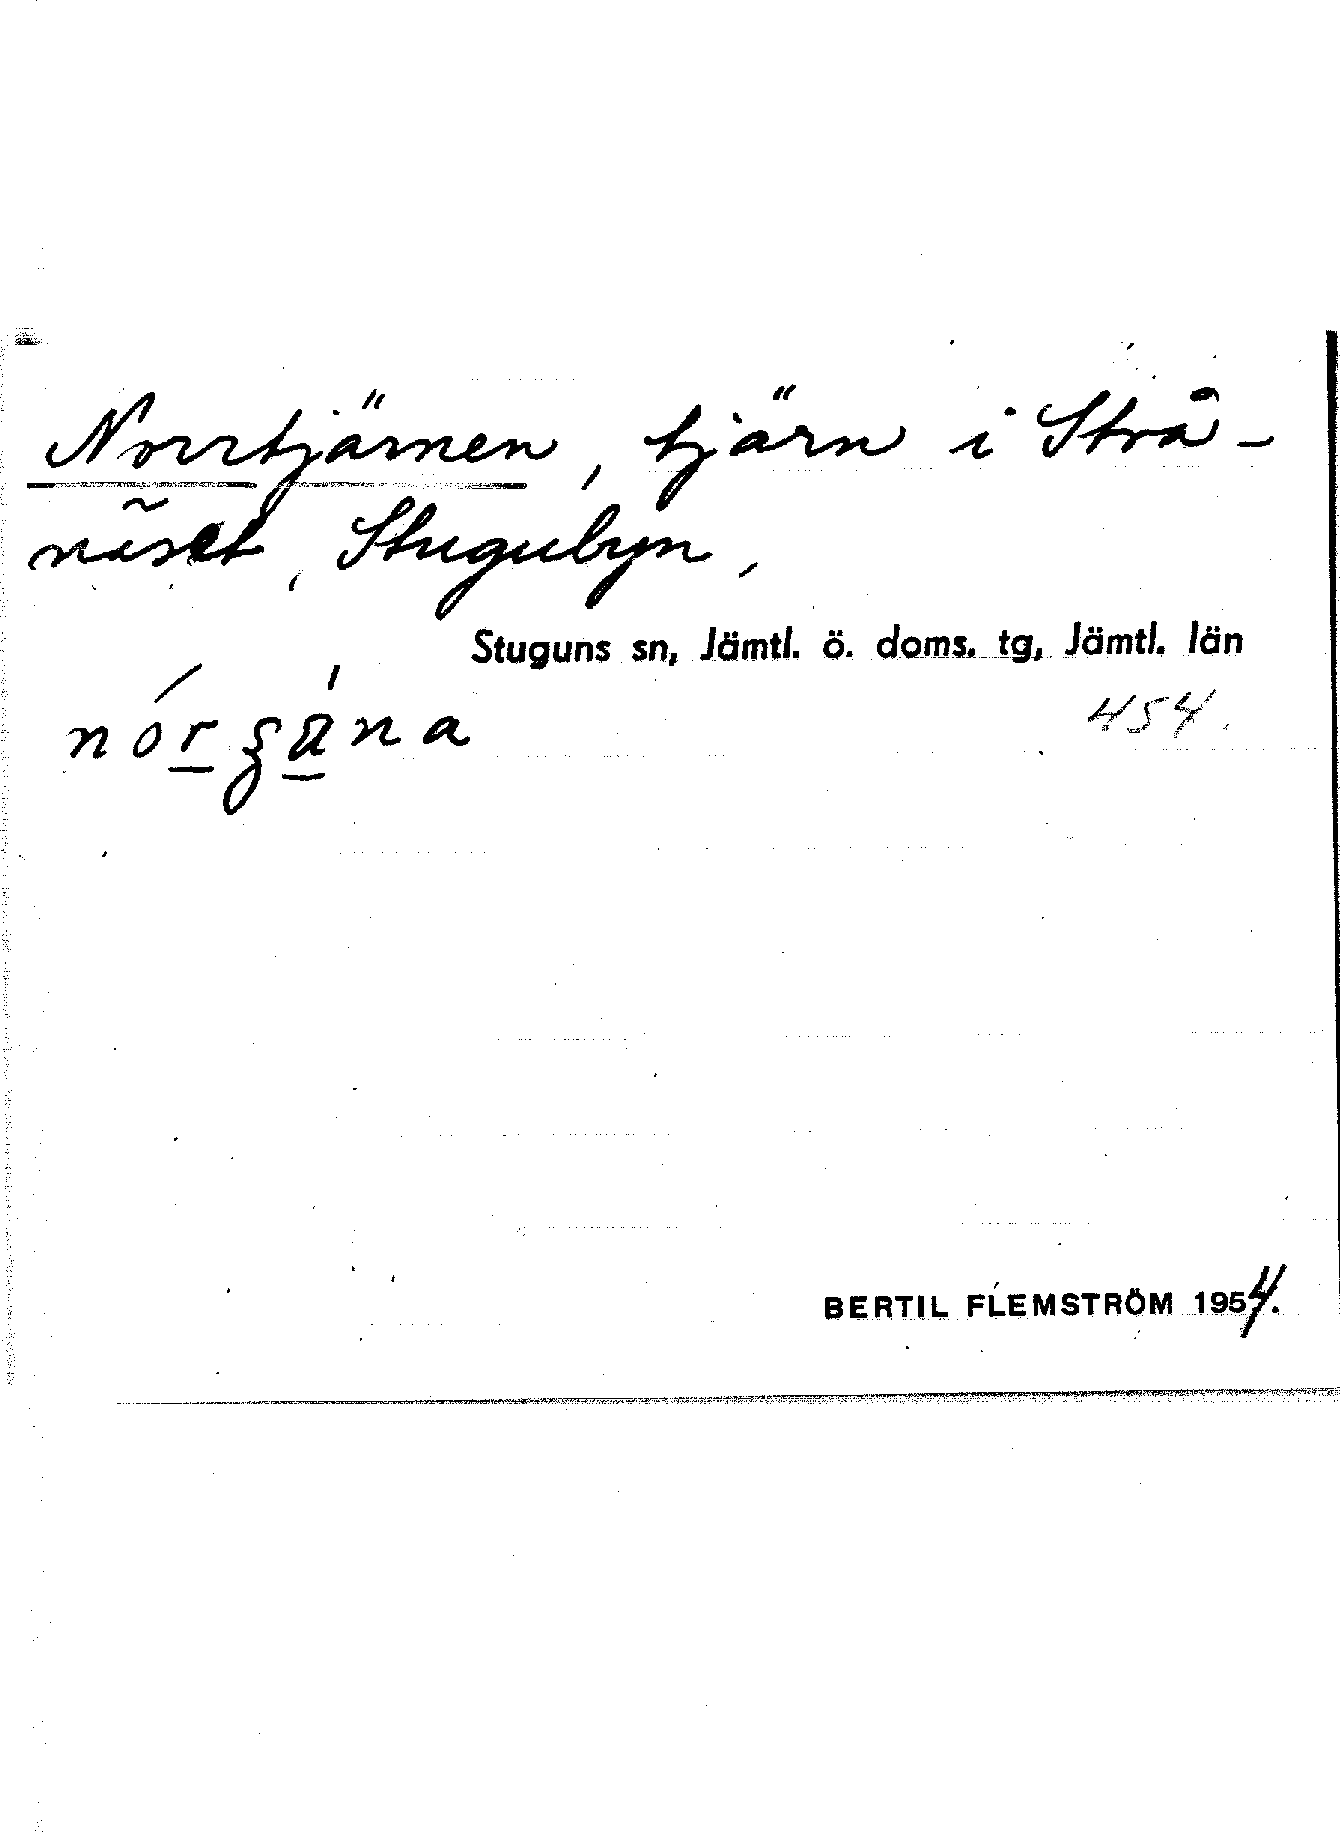 Norrtjärnen, tjärn i Strå-
näset, Stugubyn,
Stuguns sn, Jämtl. ö. doms. tg, Jämtl. län
454.
BERTIL FLEMSTRÖM 1954.